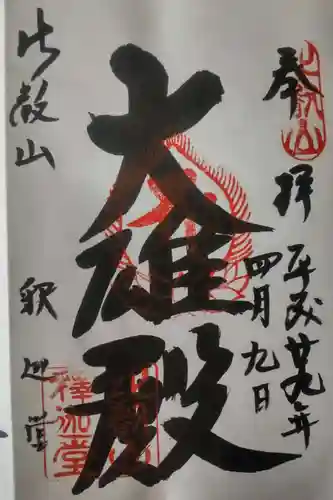 奉拝
平成廿九年
四月九日
大雄殿
比叡山
釈迦堂
釋迦堂